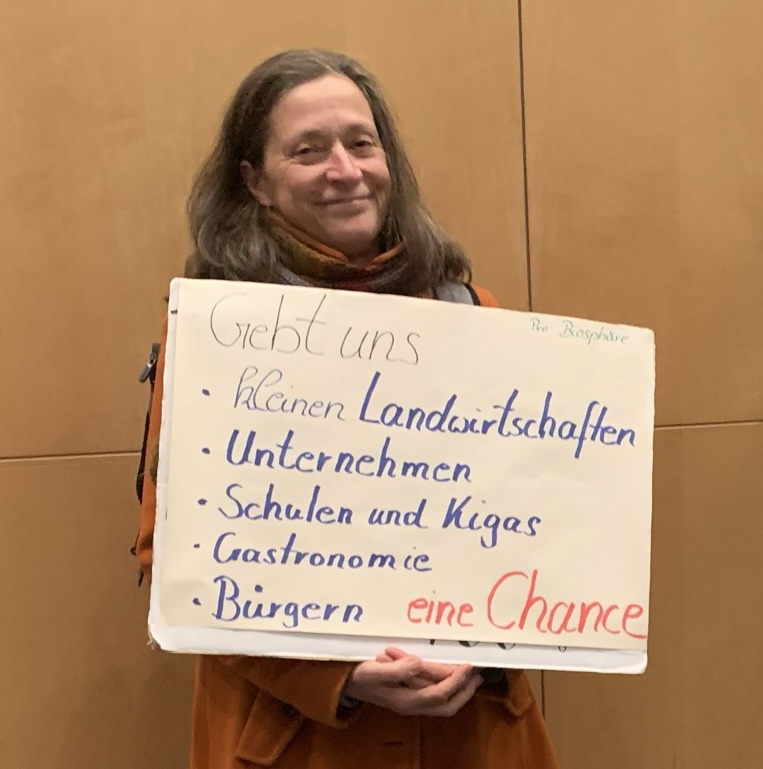 Pro Biosphäre
Gebt uns
· kleinen Landwirtschaften
· Unternehmen
· Schulen und Kigas
· Gastronomie
· Bürgern eine Chance